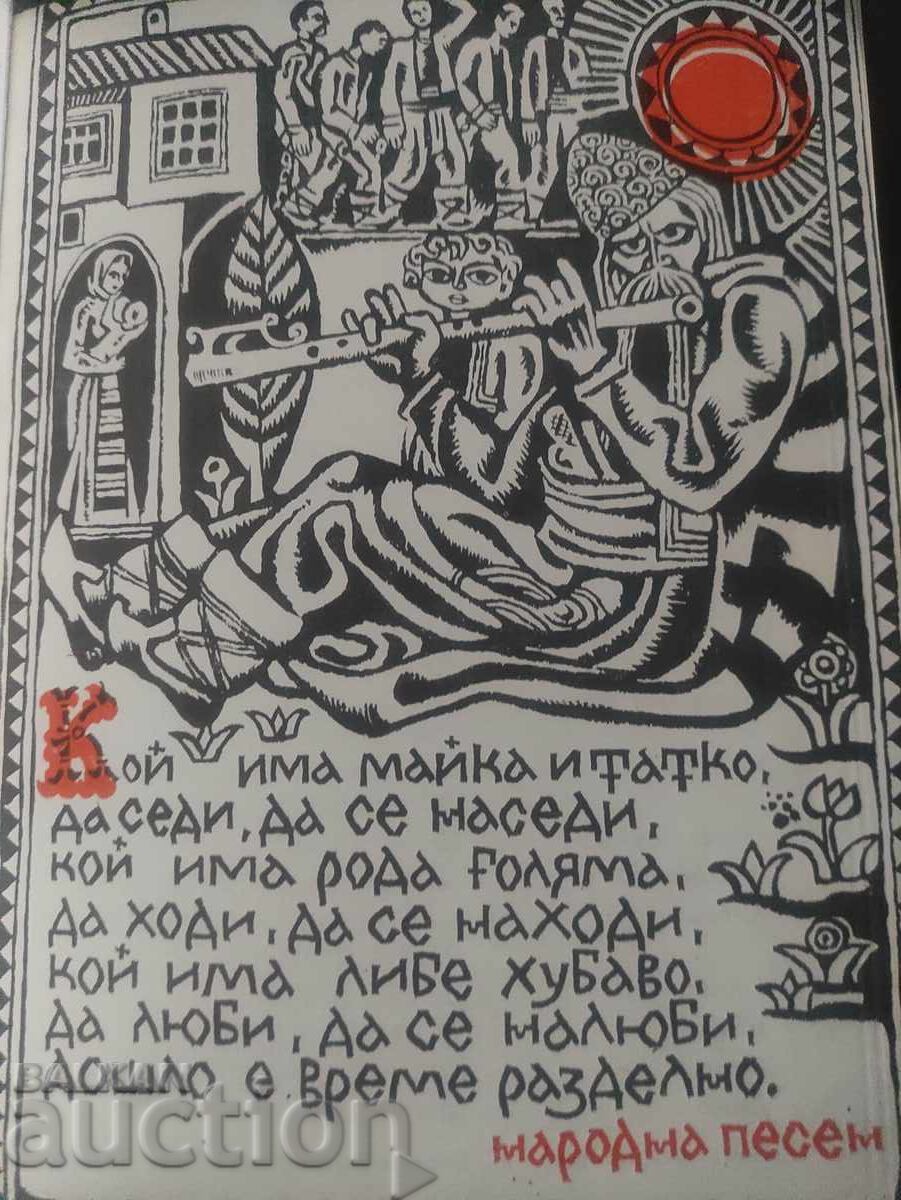 Кой има майка и татко,
да седи, да се наседи,
кой има рода голяма,
да ходи, да се находи,
кой има либе хубаво,
да люби, да се налюби,
дошло е време разделно.
народна песен
auction